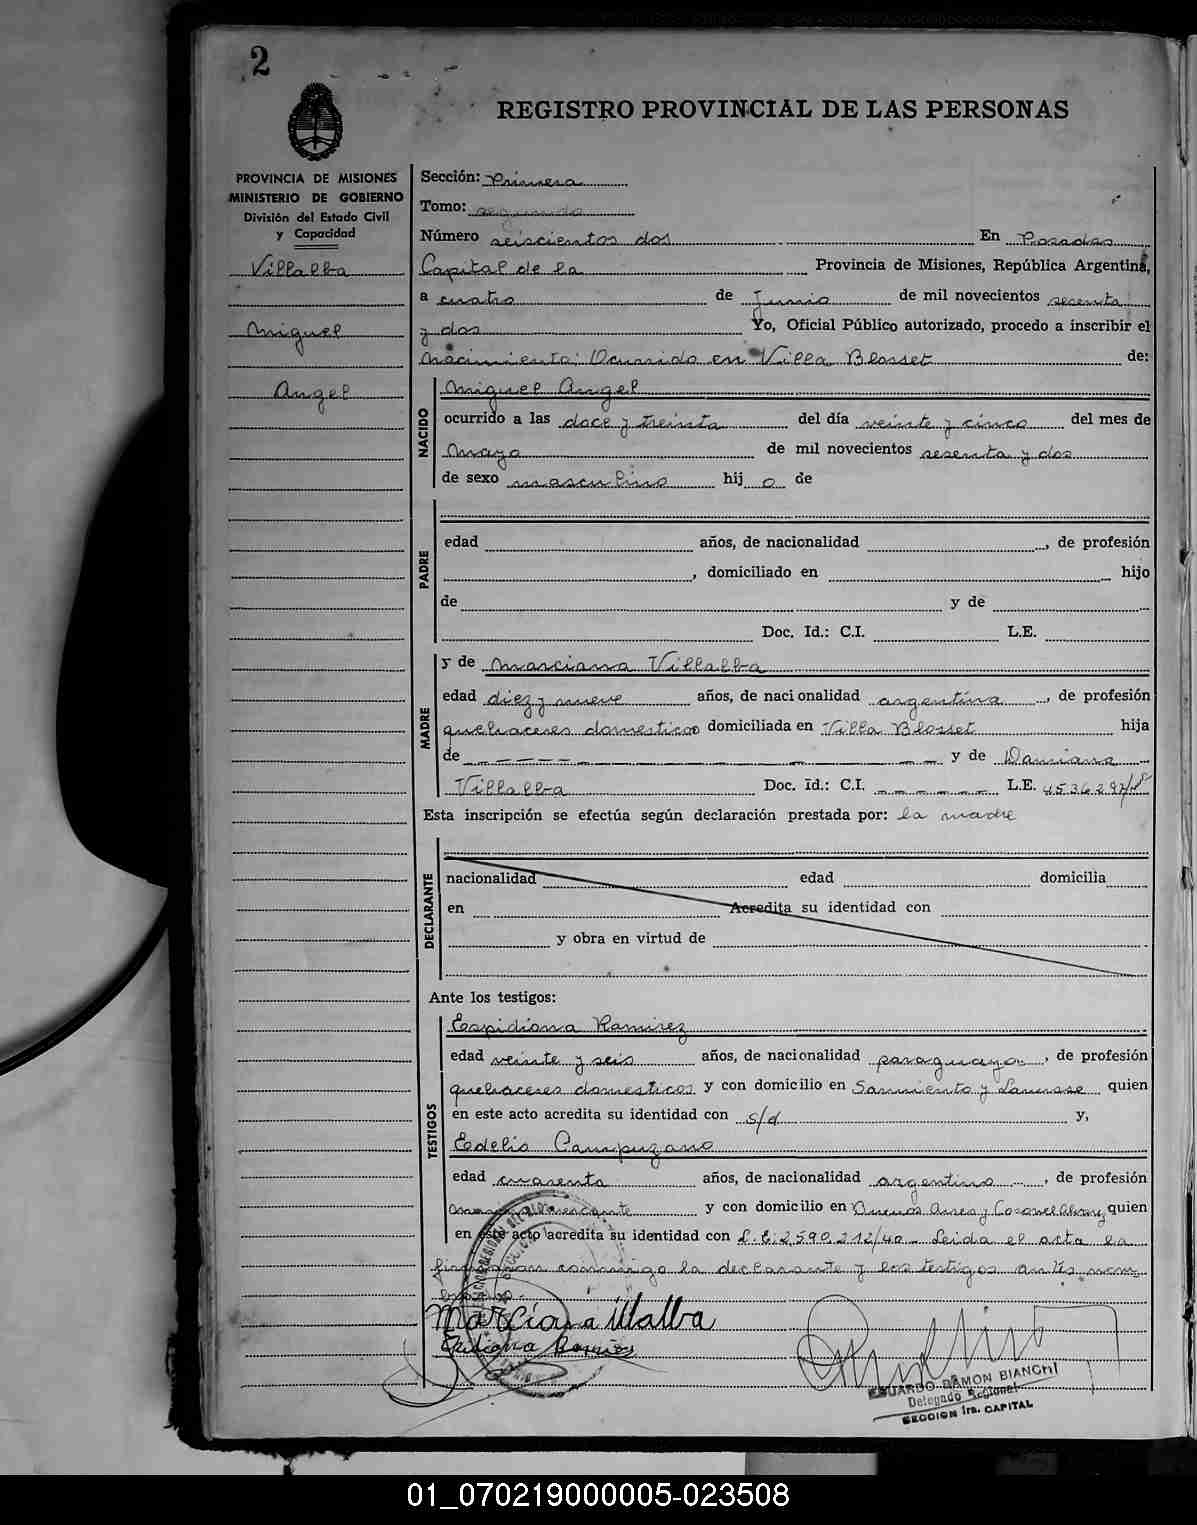 2
REGISTRO PROVINCIAL DE LAS PERSONAS
PROVINCIA DE MISIONES
MINISTERIO DE GOBIERNO
División del Estado Civil
y Capacidad
Villalba
Miguel
Angel
Sección: Primera
Tomo: segundo
Número seiscientos dos En Posadas
Capital de la Provincia de Misiones, República Argentina,
a cuatro de Junio de mil novecientos sesenta
y dos Yo, Oficial Público autorizado, procedo a inscribir el
Nacimiento: Ocurrido en Villa Blosset de:
NACIDO
Miguel Angel
ocurrido a las doce y treinta del día veinte y cinco del mes de
Mayo de mil novecientos sesenta y dos
de sexo masculino hij o de
PADRE
edad años, de nacionalidad , de profesión
, domiciliado en hijo
de y de
Doc. Id.: C.I. L.E.
MADRE
y de Marciana Villalba
edad diez y nueve años, de nacionalidad argentina , de profesión
quehaceres domesticos domiciliada en Villa Blosset hija
de y de Damiana
Villalba Doc. Id.: C.I. L.E. 4536297
Esta inscripción se efectúa según declaración prestada por: la madre
DECLARANTE
nacionalidad edad domicilia
en Acredita su identidad con
y obra en virtud de
Ante los testigos:
TESTIGOS
Espidiona Ramirez
edad veinte y seis años, de nacionalidad paraguaya , de profesión
quehaceres domesticos y con domicilio en Sarmiento y quien
en este acto acredita su identidad con s/d y,
Edelio Campuzano
edad cuarenta años, de nacionalidad argentino , de profesión
y con domicilio en Buenos Aires y Coronel quien
en este acto acredita su identidad con L.E. 2.590.212/40_ Leida el acta la
firmaron conmigo la declarante y los testigos antes nom
brados.
Marciana Villalba
EDUARDO RAMON BIANCHI
Delegado Regional
SECCION 1ra. CAPITAL
01_070219000005-023508